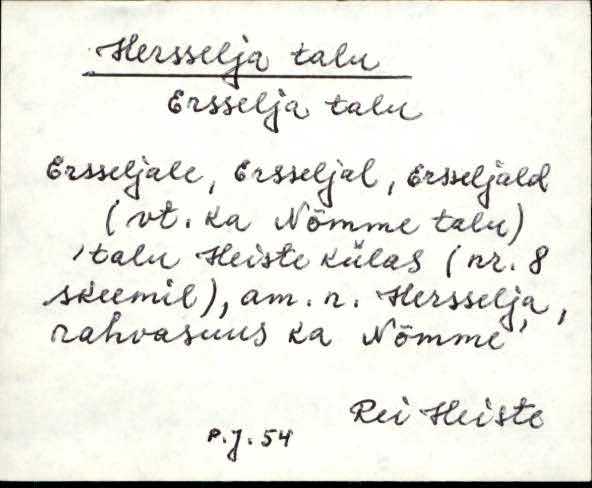 Hersselja talu
Ersselja talu
Ersseljale, Ersseljal, Ersseljald
(vt. ka Nõmme talu)
talu Heiste külas (nr. 8
skeemil), am. n. Hersselja,
rahvasuus ka Nõmme
Rei Heiste
P.J. 54